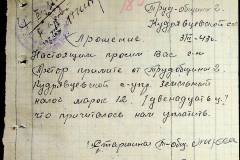 Труд-община 2.
Кудрявцевской с-
3/III-43г.
Прошение.
Настоящим просим Вас с-н
принять от Трудобщины 2.
Кудрявцевской с-упр. земельный
налог марок 12. (двенадцать ц.)
что причиталось нам уплатить.
Старшина т-общ.